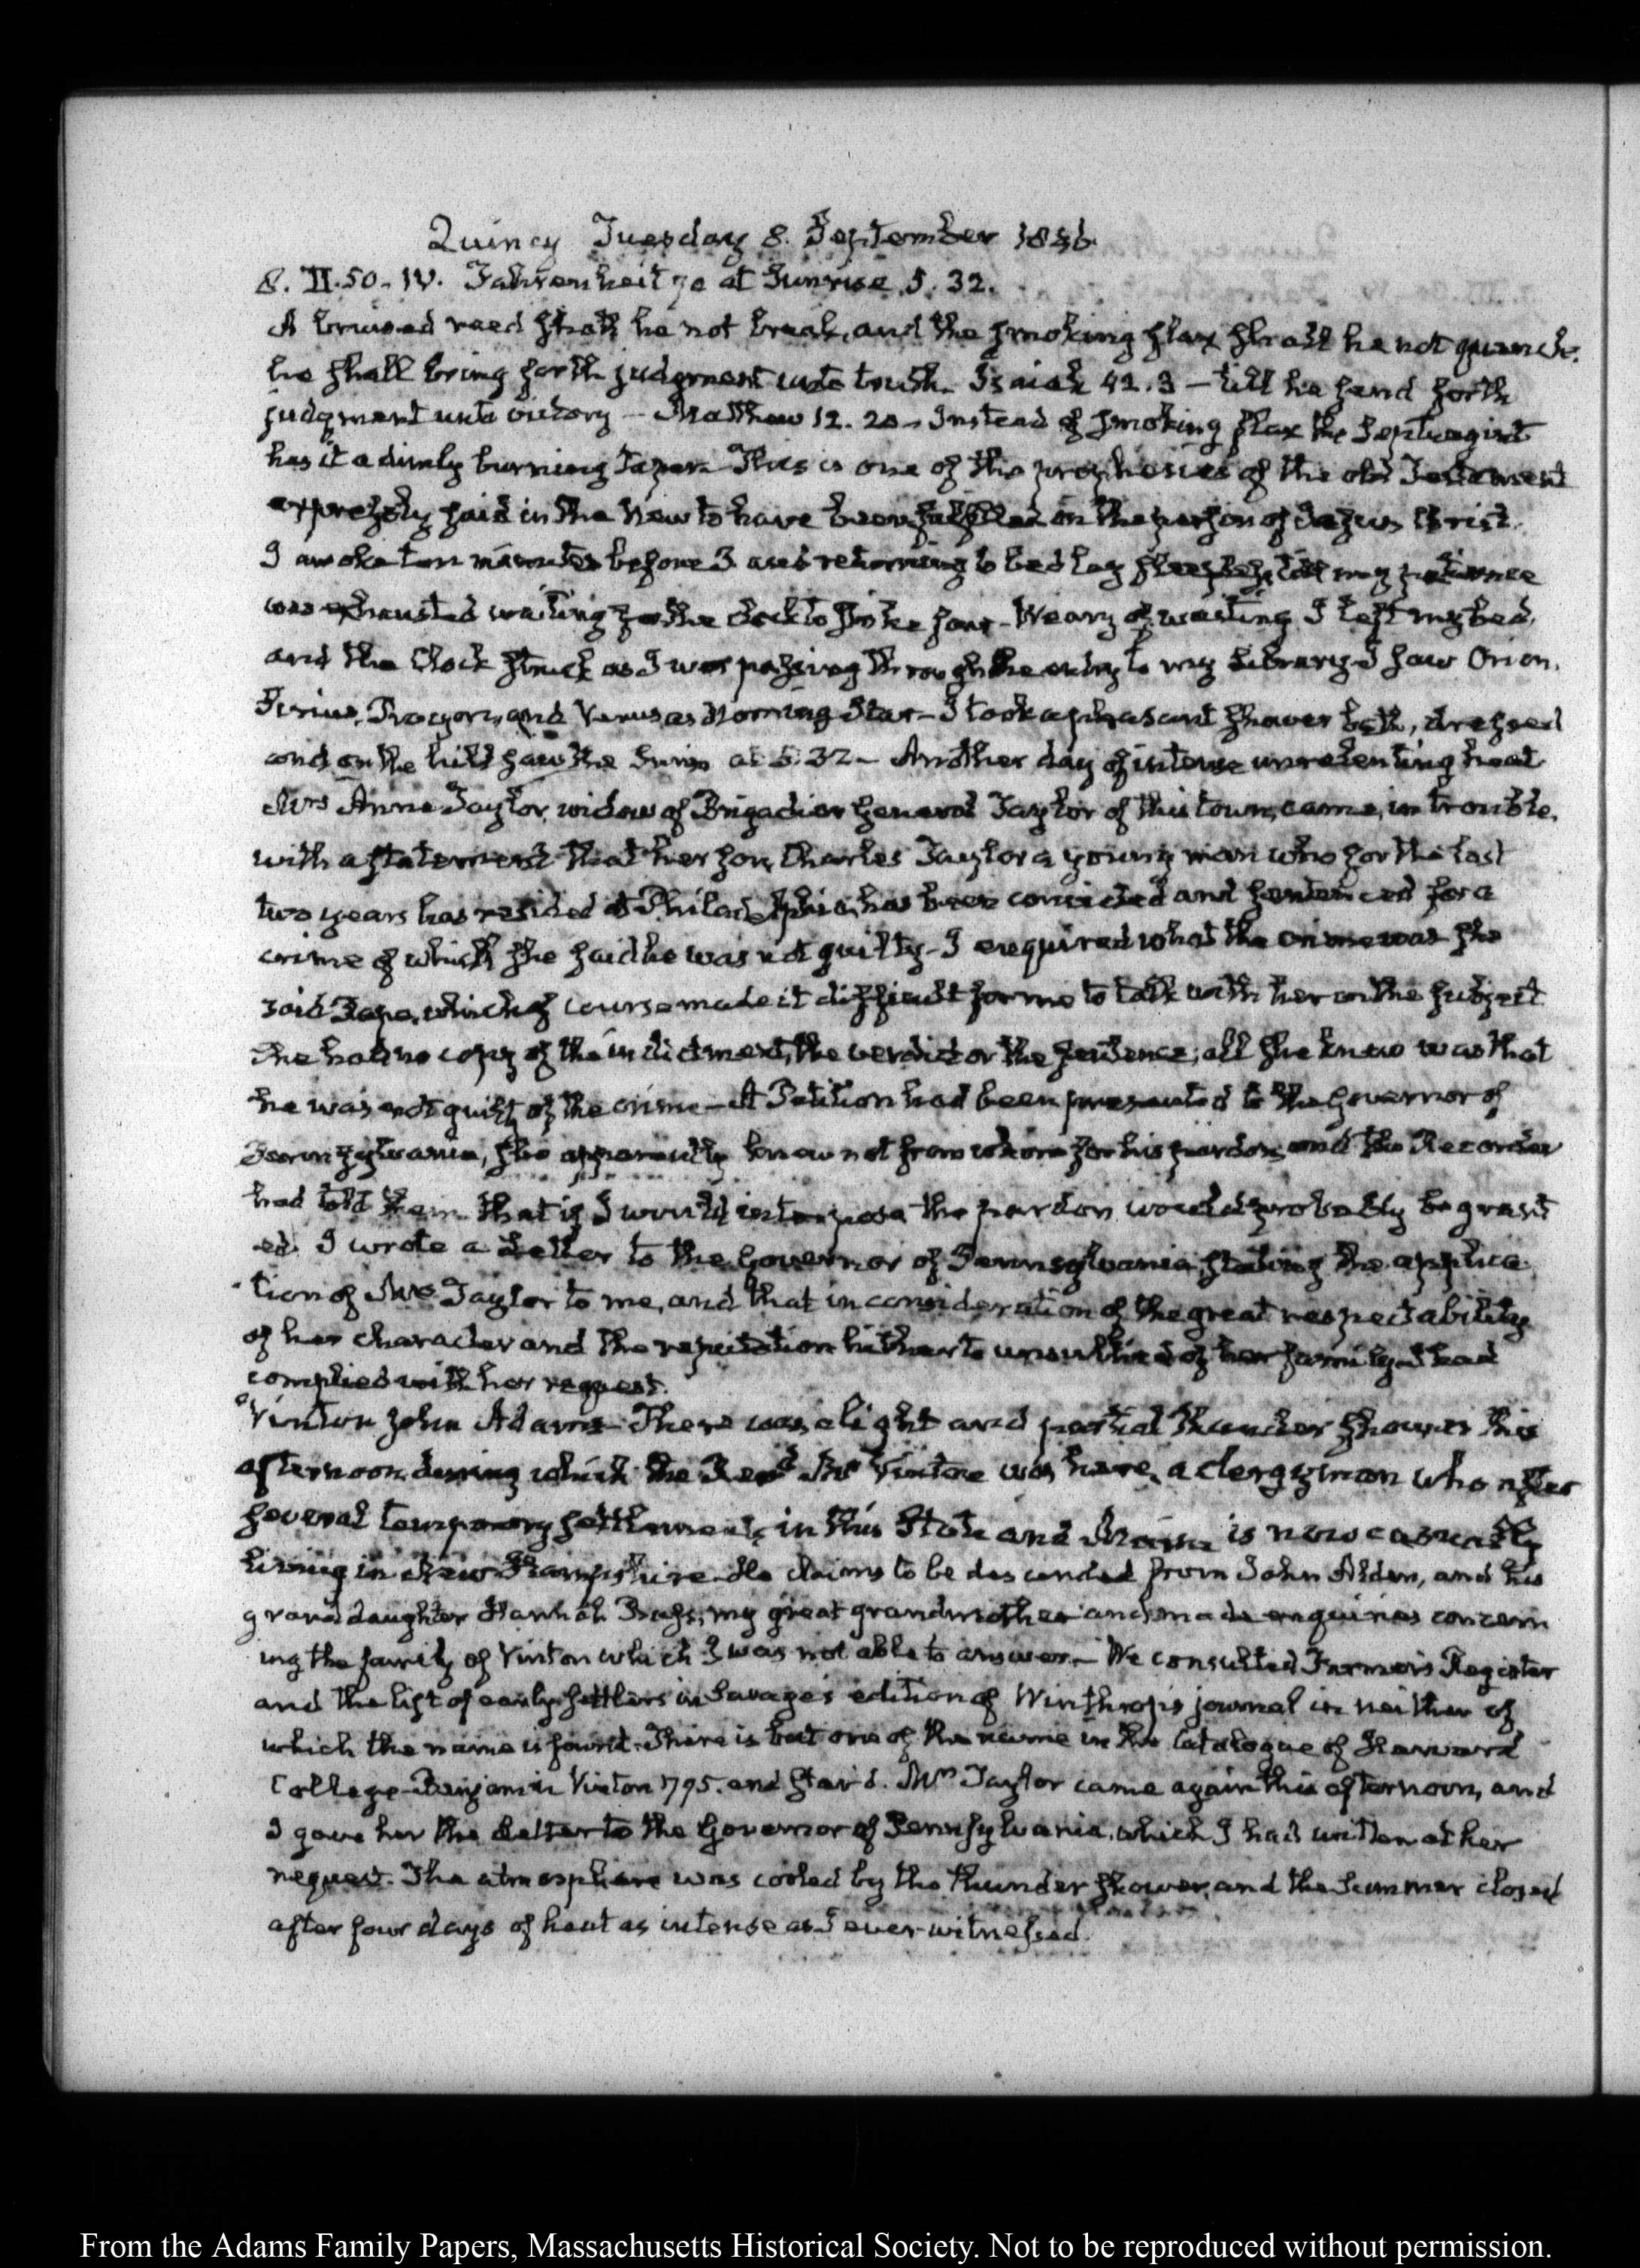 Quincy Tuesday 8. September 1846
8. II.50. IV. Fahrenheit 70 at Sunrise 5.32.
A bruised reed shall he not break, and the smoking flax shall he not quench.
he shall bring forth judgment unto truth. Isaiah 42.3 — till he send forth
judgment unto victory — Matthew 12.20 — Instead of smoking flax the Septuagint
has it a dimly burning Taper. This is one of the prophesies of the old Testament
expressly said in the New to have been fulfilled in the person of Jesus Christ.
I awoke ten minutes before 3 and returning to bed lay sleepless, till my patience
was exhausted waiting for the clock to strike four — Weary of waiting I left my bed,
and the Clock struck as I was passing through the entry to my Library. I saw Orion,
Sirius, Procyon, and Venus as Morning Star — I took a pleasant shower bath, dressed
and on the hill saw the Sun rise at 5.32 — Another day of intense unrelenting heat
Mrs Anne Taylor, widow of Brigadier General Taylor of this town, came, in trouble,
with a statement that her son, Charles Taylor a young man who for the last
two years has resided at Philadelphia, has been convicted and sentenced for a
crime of which she said he was not guilty — I enquired what the crime was she
said Rape, which of course made it difficult for me to talk with her on the subject
She had no copy of the indictment, the verdict or the sentence; all she knew was that
he was not guilty of the crime — A Petition had been presented to the Governor of
Pennsylvania, she apparently knew not from whom for his pardon, and the Recorder
had told them that if I would interpose the pardon would probably be grant
ed. I wrote a Letter to the Governor of Pennsylvania stating the applica
tion of Mrs Taylor to me, and that in consideration of the great respectability
of her character and the reputation hitherto unsullied of her family I had
complied with her request.
Vinton John Adams — There was a light and partial thunder shower this
afternoon, during which the Revd Mr Vinton was here, a clergyman who after
several temporary settlements in this State and Maine is now casually
living in New Hampshire. He claims to be descended from John Alden, and his
grand daughter Hannah Bass, my great grandmother and made enquiries concern
ing the family of Vinton which I was not able to answer. — We consulted Farmer's Register
and the list of early settlers in Savage's edition of Winthrop's journal in neither of
which the name is found. There is but one of the name in the Catalogue of Harvard
College — Benjamin Vinton 1795. Mrs Taylor came again this afternoon, and
I gave her the Letter to the Governor of Pennsylvania, which I had written at her
request. The atmosphere was cooled by the thunder shower, and the Summer closed
after four days of heat as intense as I ever witnessed.
From the Adams Family Papers, Massachusetts Historical Society. Not to be reproduced without permission.